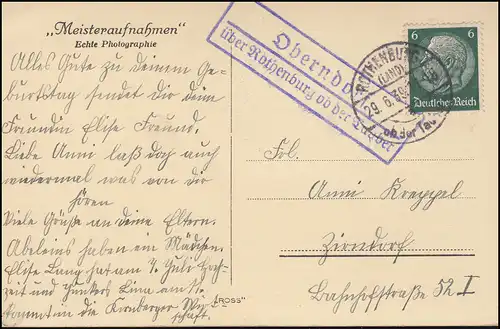 „Meisteraufnahmen"
Echte Photographie
Alles Gute zu deinem Ge-
burtstag sendet dir deine
Freundin Elise Freund.
Liebe Anni laß doch auch
wiedermal was von dir
hören
Viele Grüße an deine Eltern.
Abeleins haben ein Mädchen.
Elise Lang hat am 7. Juli Hoch-
zeit und Lina am
in die Kirnberger Wirt-
schaft.
"ROSS"
Oberndo
über Rothenburg ob der Tauber
ROTHENBURG
(LAND)
29. 6. 39
ob der Tau
6 6
Deutsches Reich
Frl.
Anni Kreppel
Zirndorf
Bahnhofstraße 52 I